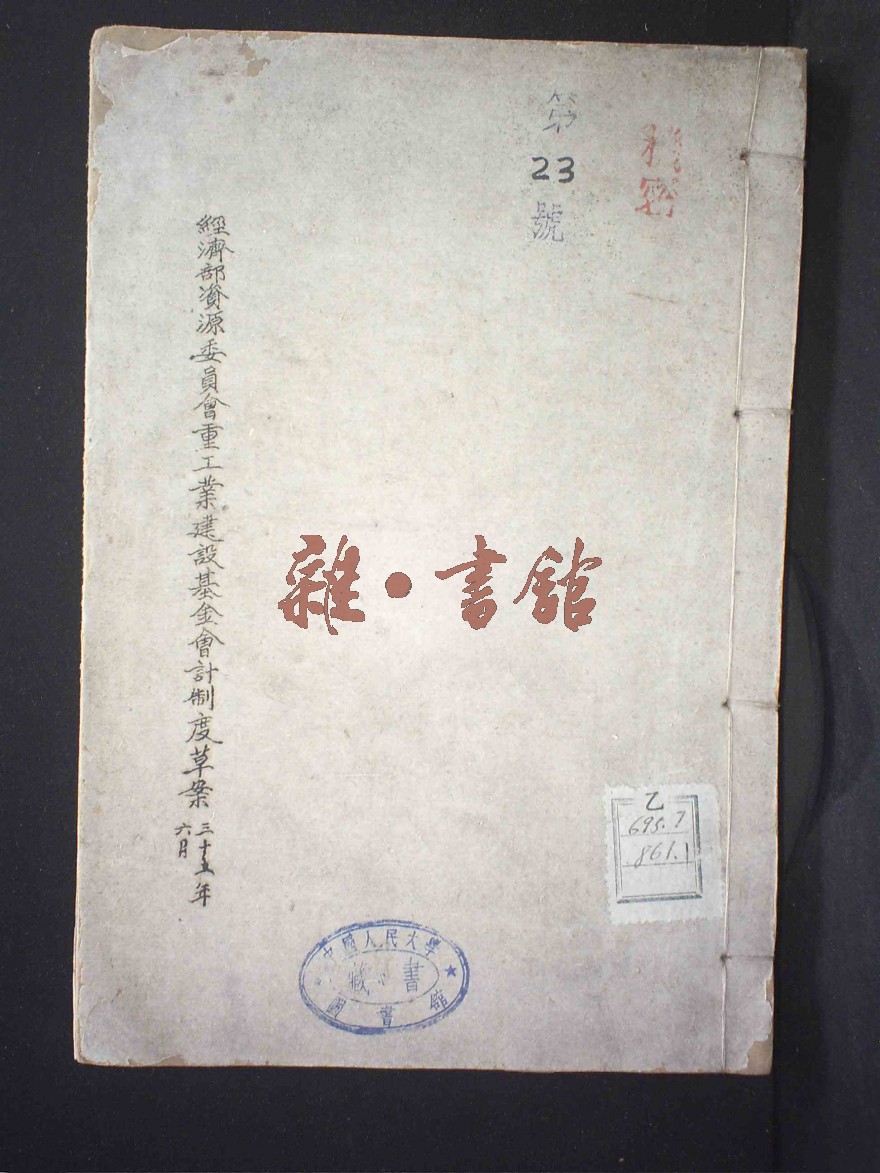 秘密
第
23
號
經濟部資源委員會重工業建設基金會計制度草案
三十五年
六月
雜·書館
乙
695.7
.861.1
中國人民大學
藏書
圖書館